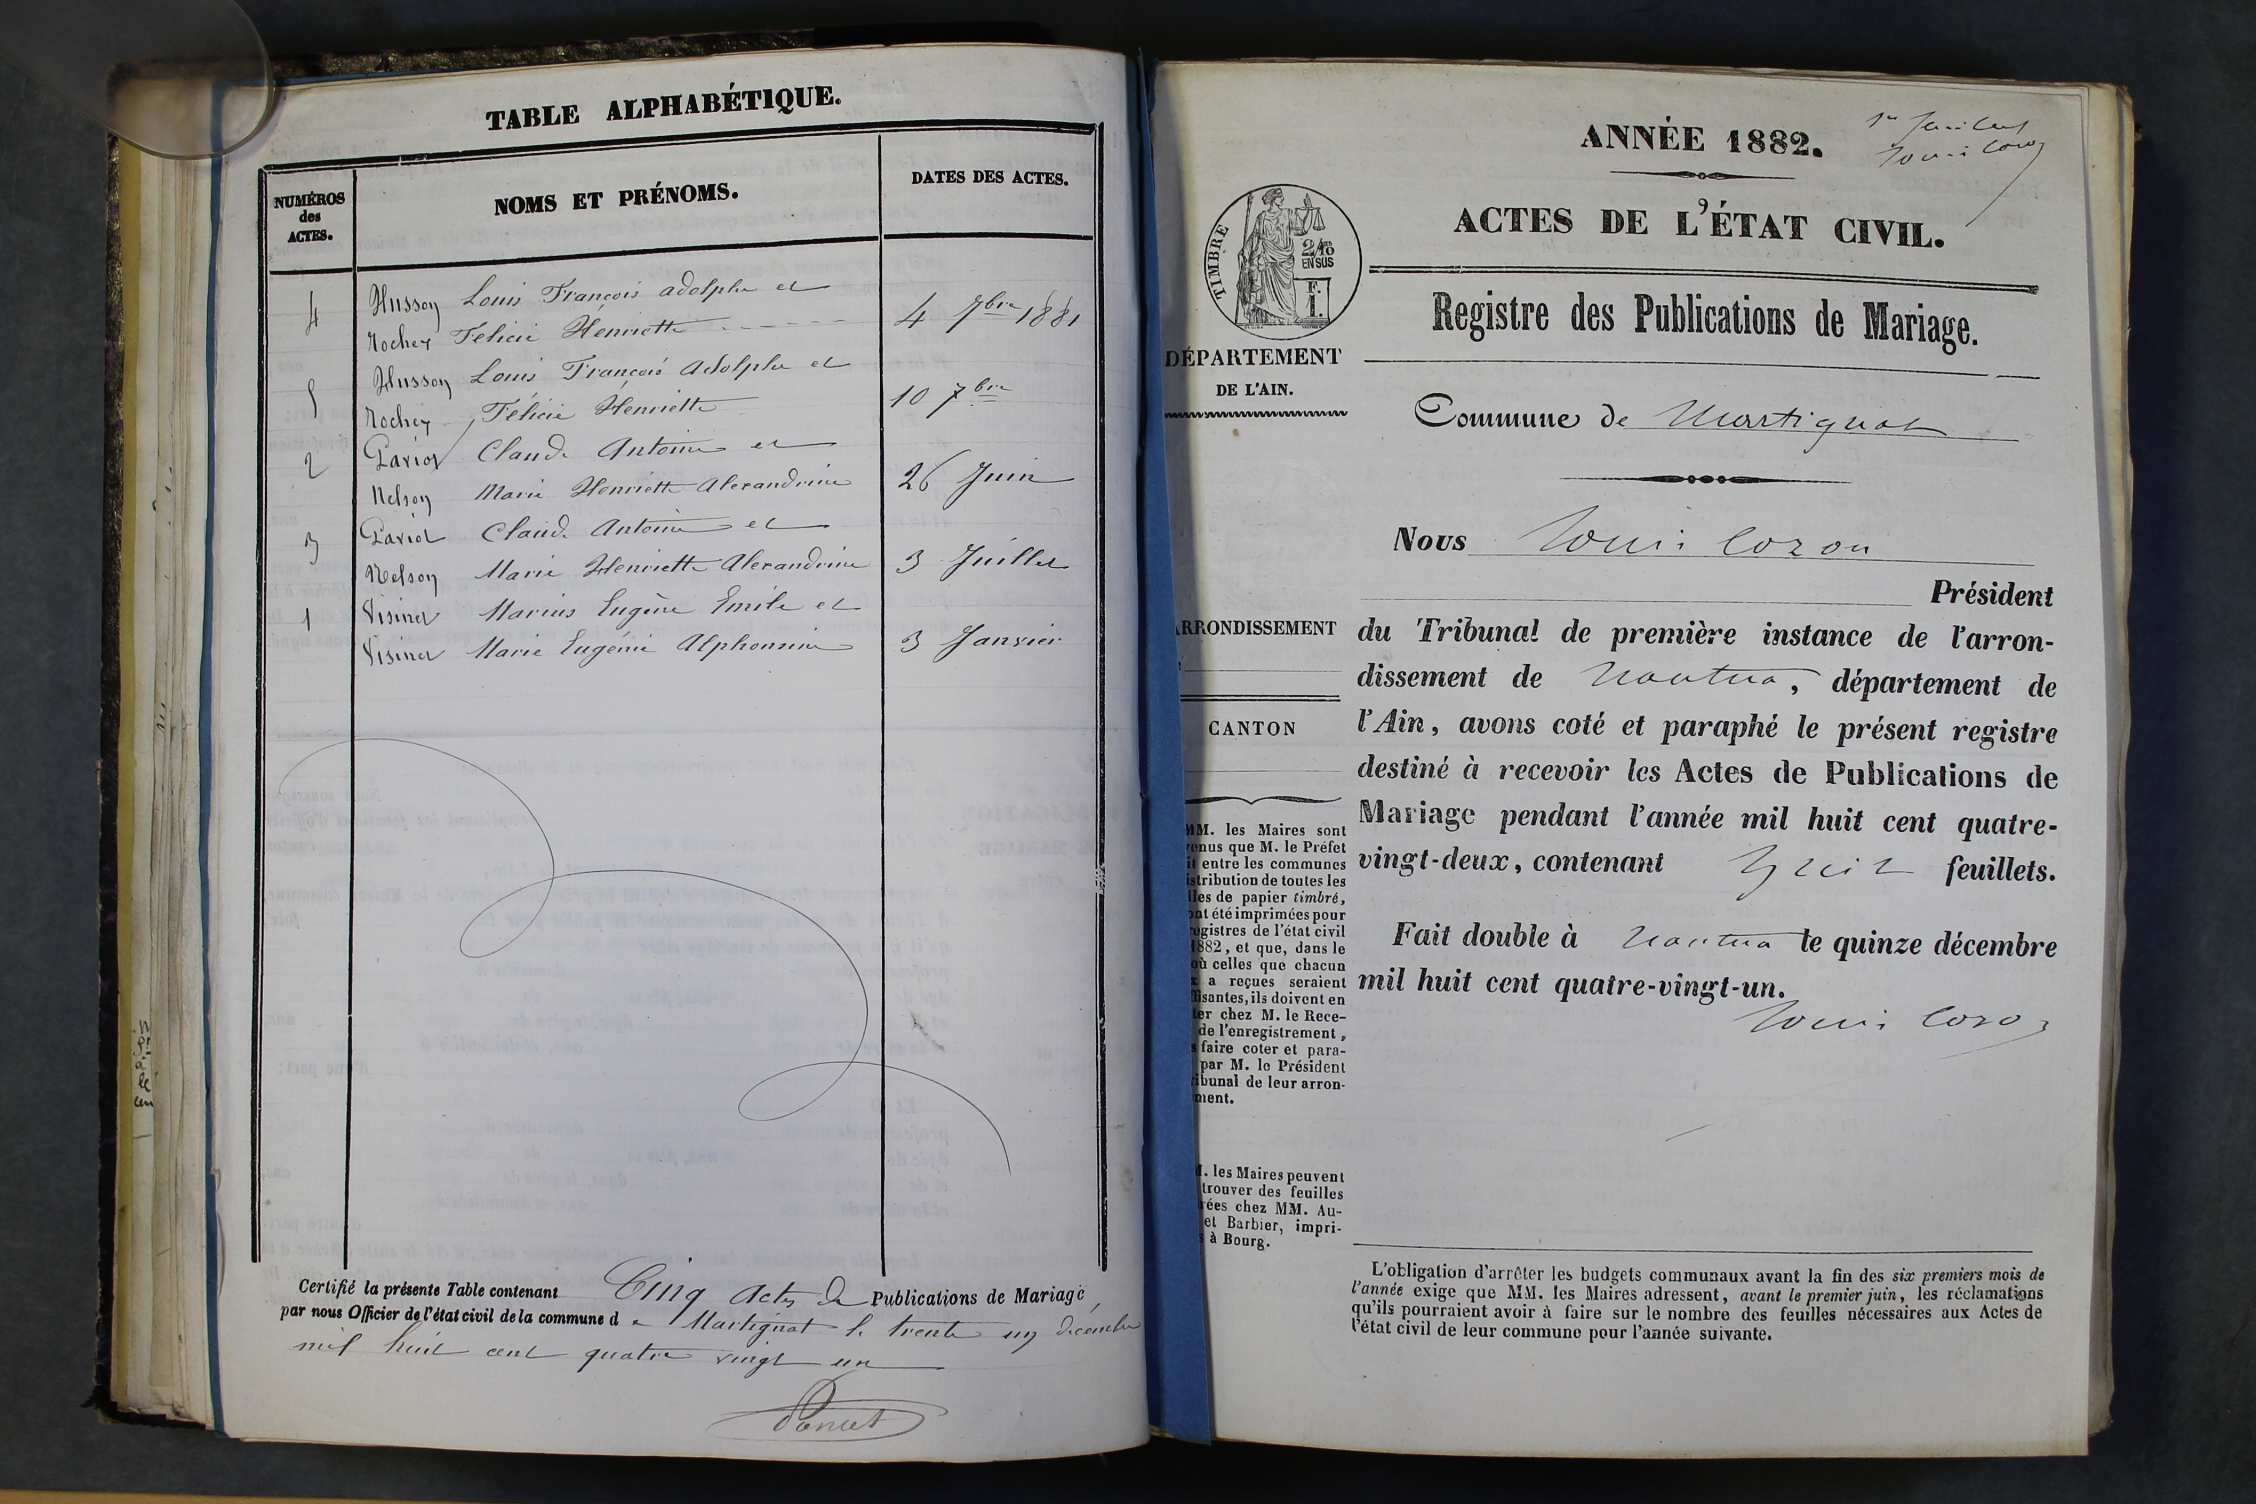 TABLE ALPHABÉTIQUE.
NUMÉROS
des
ACTES.
NOMS ET PRÉNOMS.
DATES DES ACTES.
4 Husson Louis François adolphe et
Rochez Félicie Henriette 4 7bre 1881
5 Husson Louis François Adolphe et
Rochez Félicie Henriette 10 7bre
2 Pariot Claude Antoine et
Nelson Marie Henriette Alexandrine 26 Juin
3 Pariot Claude Antoine et
Nelson Marie Henriette Alexandrine 3 Juillet
1 Visinet Marius Eugène Emile et
Visinet Marie Eugénie Alphonsine 3 Janvier
Certifié la présente Table contenant Cinq actes de Publications de Mariage,
par nous Officier de l'état civil de la commune de Martignat le trente un décembre
mil huit cent quatre vingt un
ANNÉE 1882.
1er feuillet
Louis Cozon
ACTES DE L'ÉTAT CIVIL.
TIMBRE
2/10
EN SUS
F.
1.
Registre des Publications de Mariage.
DÉPARTEMENT
DE L'AIN.
Commune de Martignat
Nous Louis Cozon
Président
ARRONDISSEMENT
du Tribunal de première instance de l'arron-
dissement de Nantua, département de
CANTON
l'Ain, avons coté et paraphé le présent registre
destiné à recevoir les Actes de Publications de
Mariage pendant l'année mil huit cent quatre-
vingt-deux, contenant feuillets.
Fait double à Nantua le quinze décembre
mil huit cent quatre-vingt-un.
Louis Cozon
MM. les Maires sont
enus que M. le Préfet
it entre les communes
istribution de toutes les
lles de papier timbré,
ont été imprimées pour
egistres de l'état civil
1882, et que, dans le
où celles que chacun
x a reçues seraient
fisantes, ils doivent en
ter chez M. le Rece-
de l'enregistrement,
s faire coter et para-
par M. le Président
ribunal de leur arron-
ment.
M. les Maires peuvent
trouver des feuilles
rées chez MM. Au-
et Barbier, impri-
s à Bourg.
L'obligation d'arrêter les budgets communaux avant la fin des six premiers mois de
l'année exige que MM. les Maires adressent, avant le premier juin, les réclamations
qu'ils pourraient avoir à faire sur le nombre des feuilles nécessaires aux Actes de
l'état civil de leur commune pour l'année suivante.